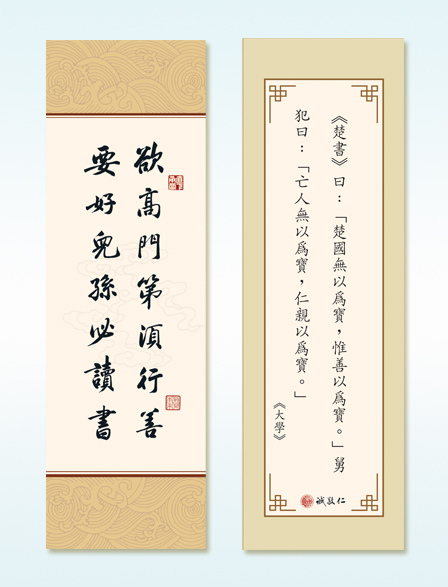 欲高門第須行善
要好兒孫必讀書
《楚書》曰：「楚國無以爲寶，惟善以爲寶。」舅
犯曰：「亡人無以爲寶，仁親以爲寶。」
《大學》
誠敬仁